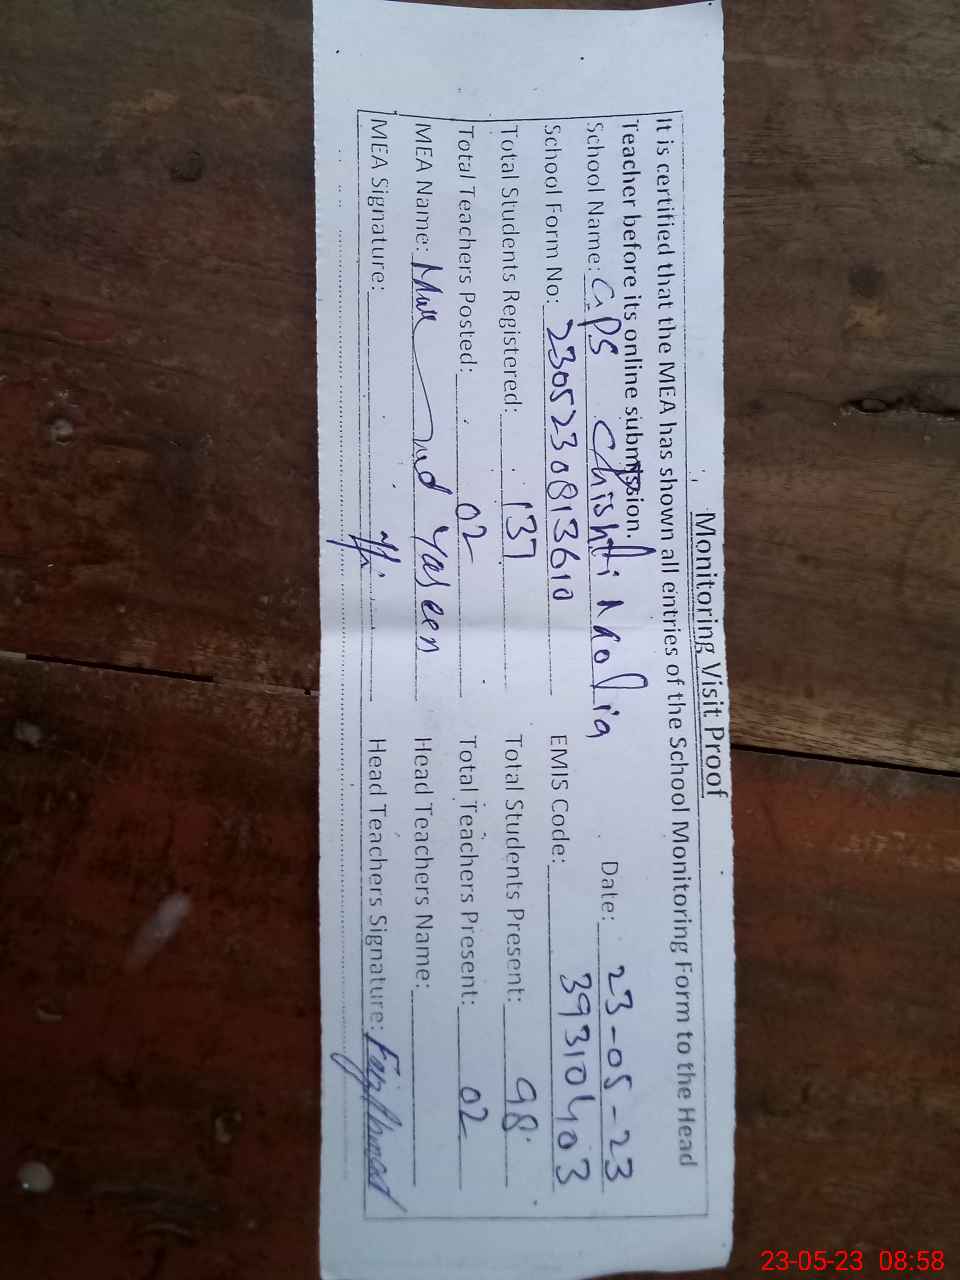 Monitoring Visit Proof
It is certified that the MEA has shown all entries of the School Monitoring Form to the Head
Teacher before its online submission.
Date: 23-05-23
School Name: GPS Chishti
School Form No: 2305230813610 EMIS Code: 39310403
Total Students Registered: 137 Total Students Present: 98
Total Teachers Posted: 02 Total Teachers Present: 02
MEA Name: Yaseen Head Teachers Name:
MEA Signature: Head Teachers Signature:
23-05-23 08:58